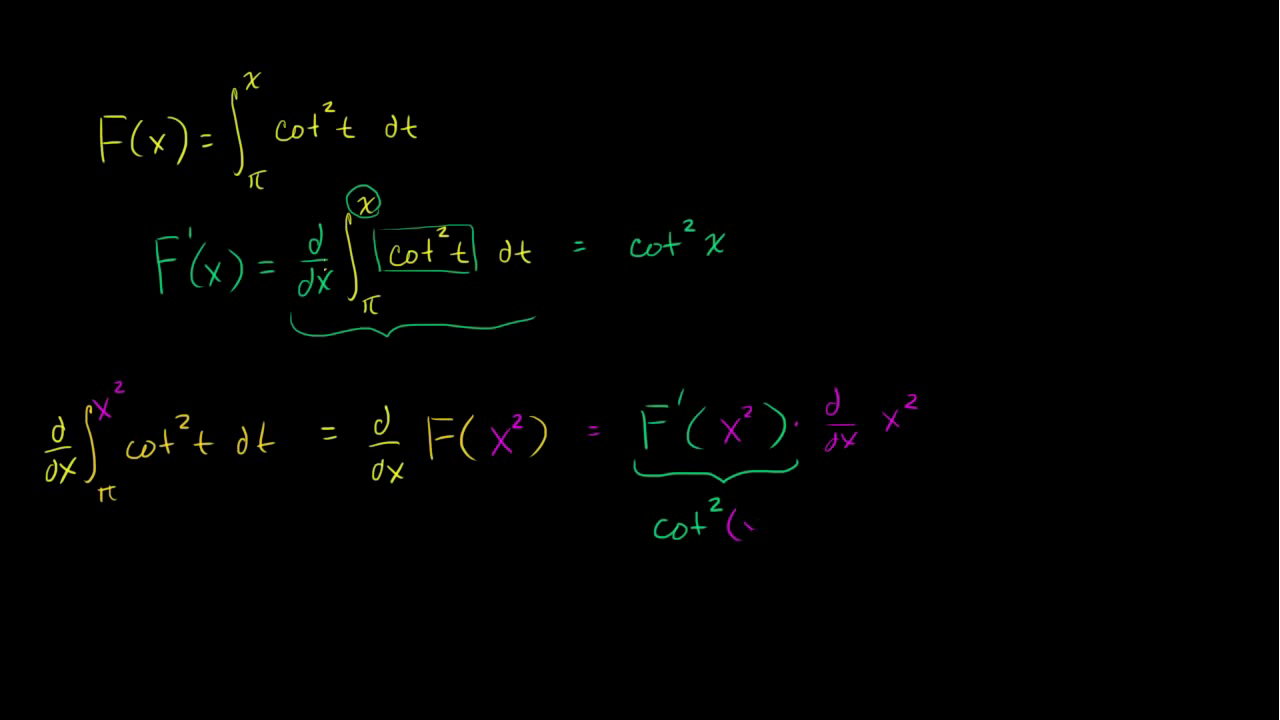 F(x) = ∫_π^x cot² t dt
F'(x) = d/dx ∫_π^x cot² t dt = cot² x
d/dx ∫_π^x² cot² t dt = d/dx F(x²) = F'(x²) · d/dx x²
cot² (